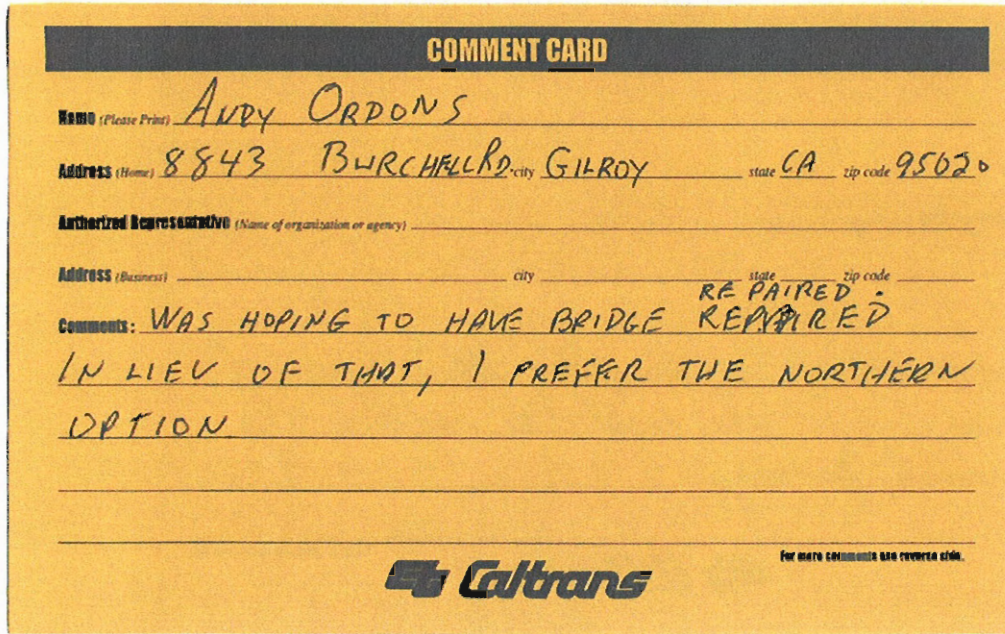 COMMENT CARD
Name (Please Print) ANDY ORDONS
Address (Home) 8843 BURCHELL RD. city GILROY state CA zip code 95020
Authorized Representative (Name of organization or agency)
Address (Business) city state zip code
REPAIRED.
Comments: WAS HOPING TO HAVE BRIDGE REPAIRED
IN LIEU OF THAT, I PREFER THE NORTHERN
OPTION
For more comments use reverse side.
Caltrans